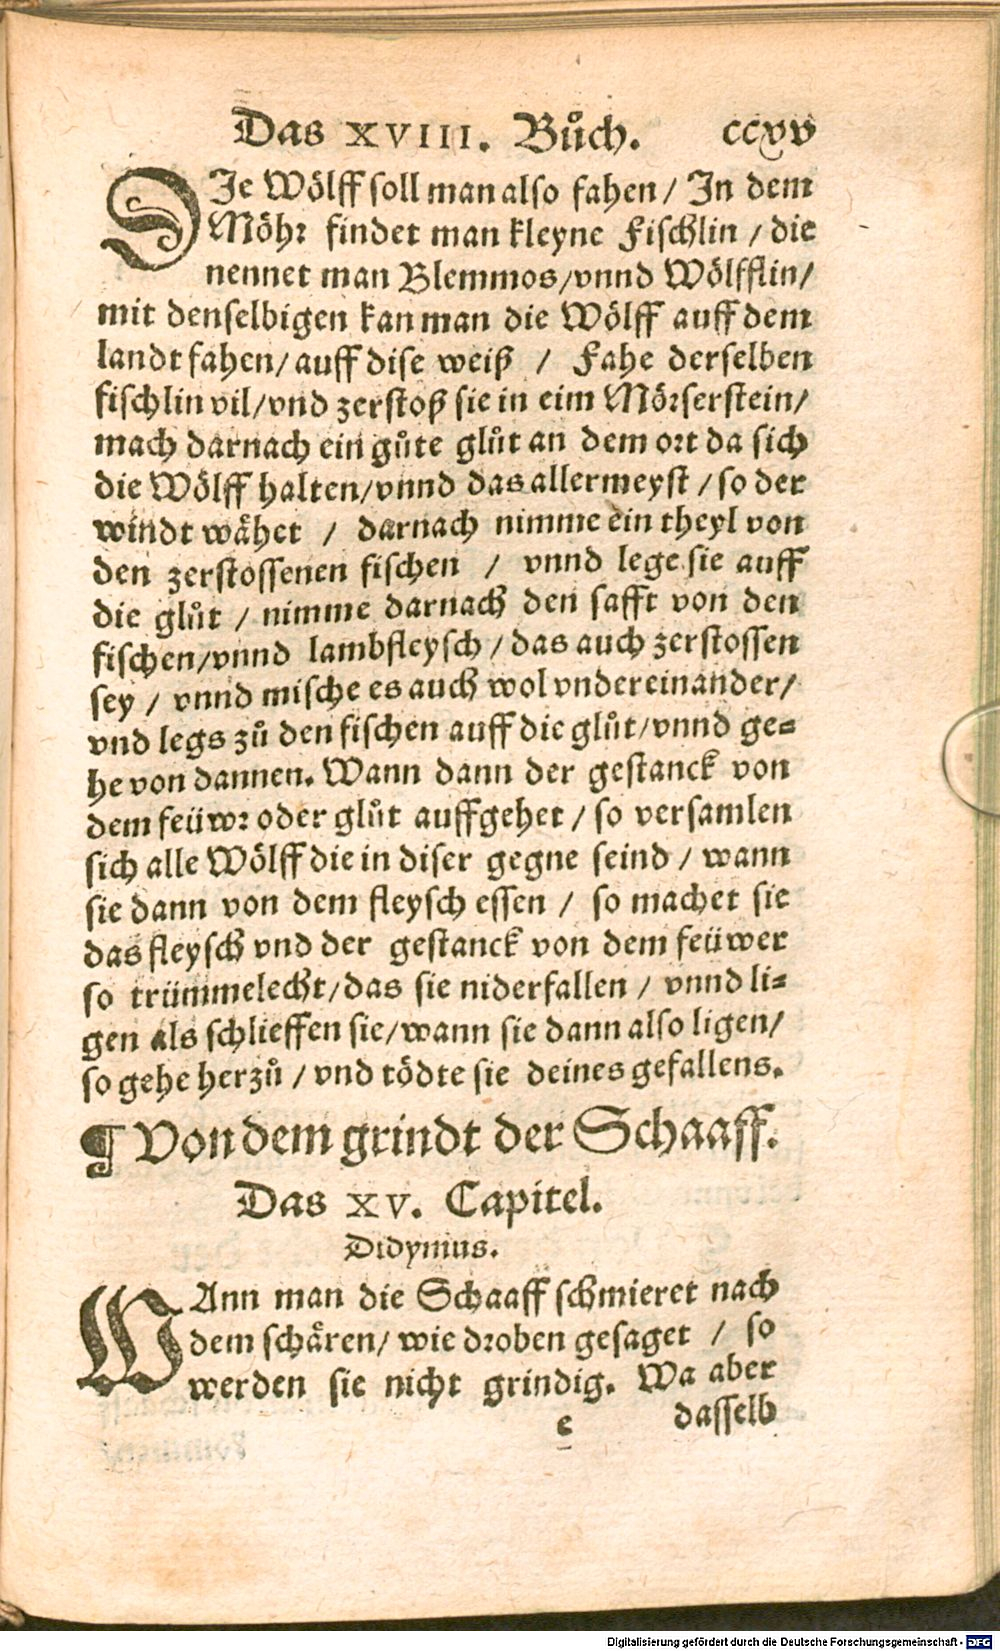 Das XVIII. Bůch. ccxv
DJe Wölff soll man also fahen / Jn dem
Möhr findet man kleyne Fischlin / die
nennet man Blemmos/vnnd Wölfflin/
mit denselbigen kan man die Wölff auff dem
landt fahen/auff dise weiß / Fahe derselben
fischlin vil/vnd zerstoß sie in eim Mörserstein/
mach darnach ein gůte glůt an dem ort da sich
die Wölff halten/vnnd das allermeyst / so der
windt wähet / darnach nimme ein theyl von
den zerstossenen fischen / vnnd lege sie auff
die glůt / nimme darnach den safft von den
fischen/vnnd lambfleysch / das auch zerstossen
sey / vnnd mische es auch wol vndereinander/
vnd legs zů den fischen auff die glůt/vnnd ge⸗
he von dannen. Wann dann der gestanck von
dem feüwr oder glůt auffgehet / so versamlen
sich alle Wölff die in diser gegne seind / wann
sie dann von dem fleysch essen / so machet sie
das fleysch vnd der gestanck von dem feüwer
so trümmelecht/das sie niderfallen / vnnd li⸗
gen als schlieffen sie/wann sie dann also ligen/
so gehe herzů / vnd tödte sie deines gefallens.
¶ Von dem grindt der Schaaff.
Das XV. Capitel.
Didymus.
WAnn man die Schaaff schmieret nach
dem schären/ wie droben gesaget / so
werden sie nicht grindig. Wa aber
e dasselb
Digitalisierung gefördert durch die Deutsche Forschungsgemeinschaft - DFG